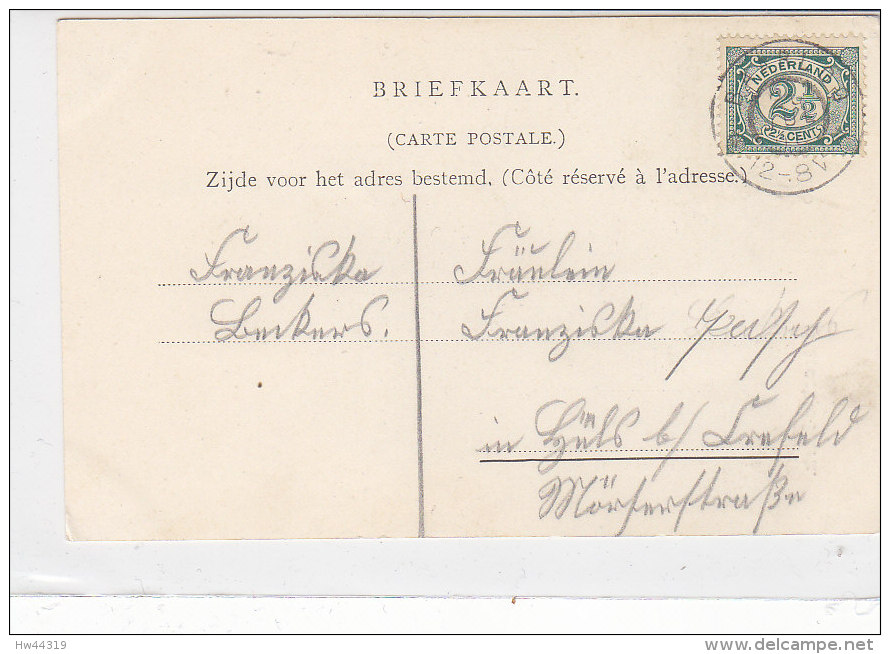 BRIEFKAART.
(CARTE POSTALE.)
Zijde voor het adres bestemd. (Côté réservé à l'adresse.)
NEDERLAND
2½
2½ CENT
12-8V
Franziska
Beckers.
Fräulein
Franziska
in Hüls b/ Crefeld
Mörserstraße
Hw44319
delcampe.net